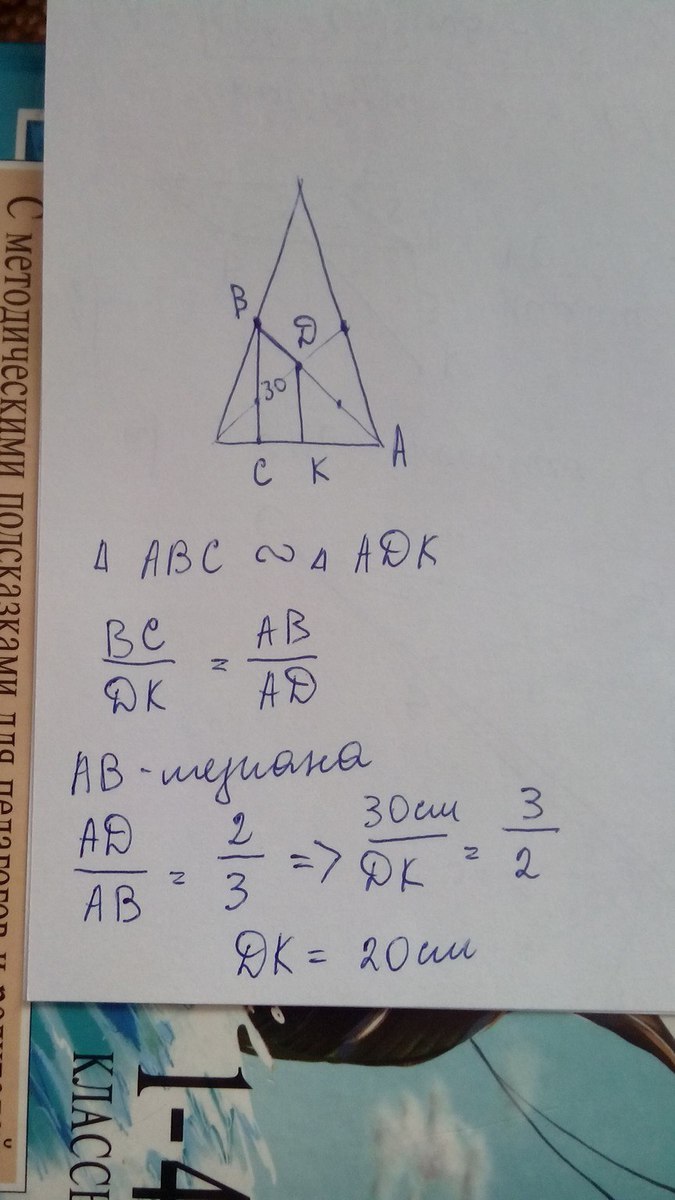 B
D
30
C K A
Δ ABC ∾ Δ ADK
BC/DK = AB/AD
AB - медиана
AD/AB = 2/3 => 30см/DK = 3/2
DK = 20см
С методическими подсказками для педагогов и
1-4
КЛАСС